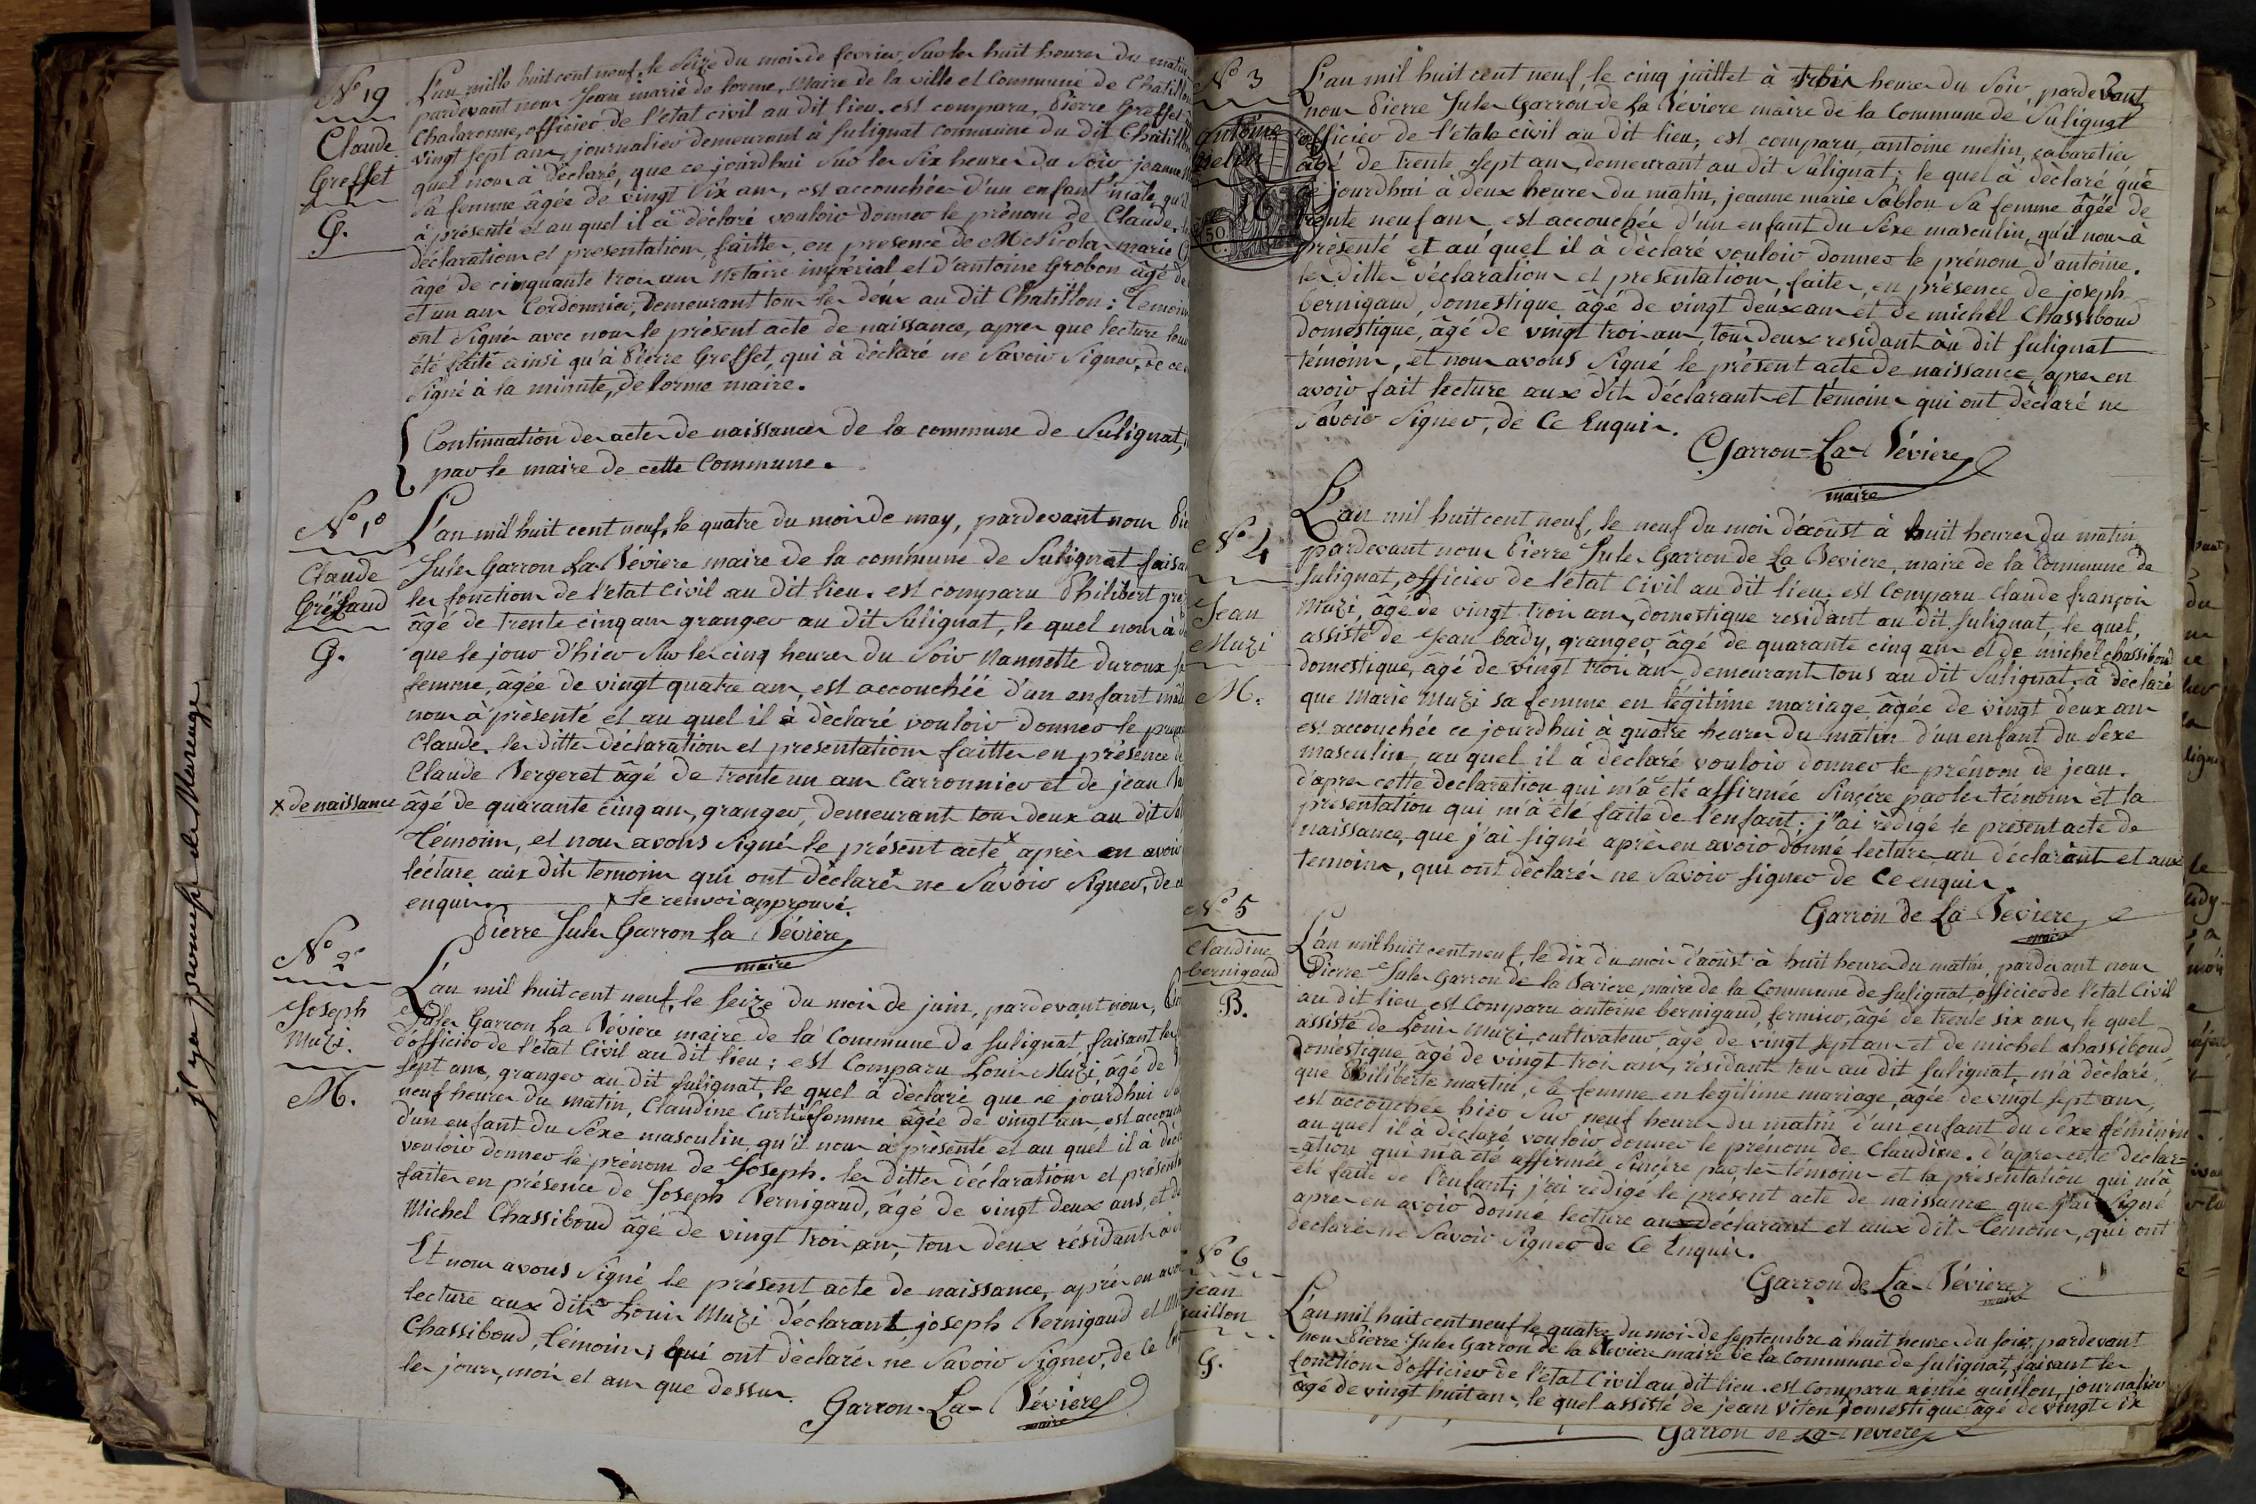 jl y en promesse de Marenge
No 19
Claude
Greffet
G.
L'an mille huit cent neuf, le seize du mois de fevrier, sur les huit heures du matin
pardevant nous Jean marie de lorme, Maire de la ville et Commune de Chatillon
Chalaronne, officier de l'état civil au dit lieu. est comparu, Pierre Greffet
vingt sept ans, journalier demeurant à Sulignat commune du dit Chatillon
quel nous à déclaré, que ce jourdhui sur les six heures du soir jeanne
sa femme âgée de vingt six ans, est accouchée d'un enfant mâle, qu'il
à présenté et au quel il à déclaré vouloir donner le prénom de Claude.
déclaration et presentation faittes, en presence de Me Nicolas marie
âgé de cinquante trois ans Notaire impérial et d'antoine Grobon âgé de
et un ans Cordonnier, demeurant tous les deux au dit Chatillon: Temoins
ont signés avec nous le présent acte de naissance, apres que lecture
été faite ainsi qu'à Pierre Greffet, qui à déclaré ne savoir signer, de ce
signé à la minute, de lorme maire.
Continuation des actes de naissances de la commune de Sulignat,
par le maire de cette Commune.
No 1o
Claude
Gréffaud
G.
L'an mil huit cent neuf, le quatre du mois de may, pardevant nous
Jules Garron La Sévière maire de la commune de Sulignat faisant
les fonctions de l'etat civil au dit lieu. est comparu Philibert
âgé de trente cinq ans granger au dit Sulignat, le quel nous à
que le jour d'hier sur les cinq heures du soir Nannette duroux
femme, âgée de vingt quatre ans, est accouchée d'un enfant mâle
nous à présenté et au quel il à déclaré vouloir donner le
Claude. les dittes déclarations et presentations faittes en présence de
Claude Vergeret âgé de trente un ans Carronnier et de jean
x de naissance
âgé de quarante cinq ans, granger, demeurant tous deux au dit
Témoins, et nous avons signé le présent acte x après en avoir
lécture aux dits temoins qui ont déclarés ne savoir signer, de ce
enquis. x le renvoi approuvé.
Pierre Jules Garron La Sévière
maire
No 2e
Joseph
Muzi.
M.
L'an mil huit cent neuf, le seize du mois de juin, pardevant nous,
Jules Garron La Sévière maire de la Commune de Sulignat faisant les
d'officier de l'état civil au dit lieu; est Comparu Louis Muzi, âgé de
sept ans, granger au dit sulignat, le quel à déclaré que ce jourdhui
neuf heures du matin, Claudine Curti femme âgée de vingt ans, est accouchée
d'un enfant du sexe masculin, qu'il nous à présenté et au quel il à
vouloir donner le prénom de Joseph. les dittes déclarations et
faites en présence de Joseph Bernigaud, âgé de vingt deux ans, et de
Michel Chassiboud âgé de vingt trois ans, tous deux résidants
Et nous avons signé le présent acte de naissance, après en
lecture aux dits Louis Muzi déclarant, joseph Bernigaud et
Chassiboud, témoins; qui ont déclarés ne savoir signer, de ce
les jours, mois et ans que dessus.
Garron-La-Sévière
maire
No 3
antoine
melin
50
L'an mil huit cent neuf, le cinq juillet à trois heures du soir, pardevant
nous Pierre Jules Garron de La Sévière maire de la Commune de Sulignat
officier de l'etat civil au dit lieu; est comparu antoine melin, cabaretier
âgé de trente sept ans, demeurant au dit sulignat; le quel à déclaré que
ce jourdhui à deux heures du matin, jeanne marie Sablon sa femme âgée de
trente neuf ans, est accouchée d'un enfant du sexe masculin, qu'il nous à
présenté et au quel il à déclaré vouloir donner le prénom d'antoine.
les dittes déclarations et presentations faites, en présence de joseph
bernigaud, domestique, âgé de vingt deux ans et de michel Chassiboud
domestique, âgé de vingt trois ans, tous deux residants au dit sulignat
témoins, et nous avons signé le présent acte de naissance, apres en
avoir fait lecture aux dits déclarants et témoins qui ont déclaré ne
savoir signer, de Ce Enquis.
Garron-La-Sévière
maire
No 4
Jean
Muzi
M.
L'an mil huit cent neuf, le neuf du mois d'aoust à huit heures du matin,
pardevant nous Pierre Jules Garron de La Seviere, maire de la Commune de
Sulignat, officier de l'état civil au dit lieu; est Comparu Claude françois
Muzi, âgé de vingt trois ans, domestique residant au dit sulignat, le quel,
assisté de Jean bady, granger, âgé de quarante cinq ans et de michel chassiboud
domestique, âgé de vingt trois ans demeurants tous au dit sulignat, à déclaré
que Marie Muzi sa femme en légitime mariage, âgée de vingt deux ans
est accouchée ce jourdhui à quatre heures du matin d'un enfant du sexe
masculin, au quel il à déclaré vouloir donner le prénom de jean.
d'apres cette déclaration qui m'à été affirmée sincère par les témoins et la
présentation qui m'à été faite de l'enfant; j'ai rédigé le présent acte de
naissance, que j'ai signé après en avoir donné lecture au déclarant et aux
temoins, qui ont déclarés ne savoir signer de ce enquis.
Garron de La Seviere
maire
No 5
Claudine
bernigaud
B.
L'an mil huit cent neuf, le dix du mois d'aoust à huit heures du matin, pardevant nous
Pierre Jules Garron de la Seviere, maire de la Commune de sulignat, officier de l'état Civil
au dit lieu, est Comparu antoine bernigaud, fermier, âgé de trente six ans, le quel
assisté de Louis Muzi, cultivateur, âgé de vingt sept ans et de michel chassiboud
domestique, âgé de vingt trois ans, résidants tous au dit sulignat, m'à déclaré,
que Philiberte martin, sa femme en légitime mariage, âgée de vingt sept ans,
est accouchée hier sur neuf heures du matin d'un enfant du sexe féminin
au quel il à déclaré vouloir donner le prénom de Claudine. d'apres cette déclar=
=ation qui m'a été affirmée sincère par les témoins et la présentation qui m'à
été faite de l'enfant; j'ai rédigé le présent acte de naissance que j'ai signé
apres en avoir donné lecture aux déclarant et aux dits témoins, qui ont
déclarés ne savoir signer de Ce Enquis.
Garron de La-Sévière
maire
No 6
jean
guillon
G.
L'an mil huit cent neuf le quatre du mois de septembre à huit heures du soir, pardevant
nous Pierre Jules Garron de la Seviere maire de la Commune de sulignat, faisant les
fonctions d'officier de l'état Civil au dit lieu. est Comparu aimé guillon, journalier
âgé de vingt huit ans, le quel assisté de jean Viton domestique âgé de vingt six
Garron de La-Seviere